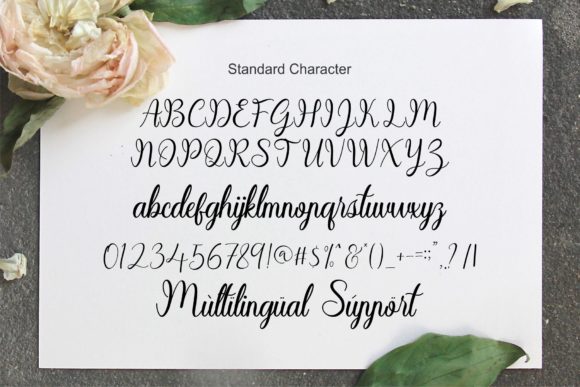 Standard Character
ABCDEFGHIJKLM
NOPQRSTUVWXYZ
abcdefghijklmnopqrstuvwxyz
0123456789!@#$%^&*()_+-=:;",.?/|
Mùltílingüal Súppört